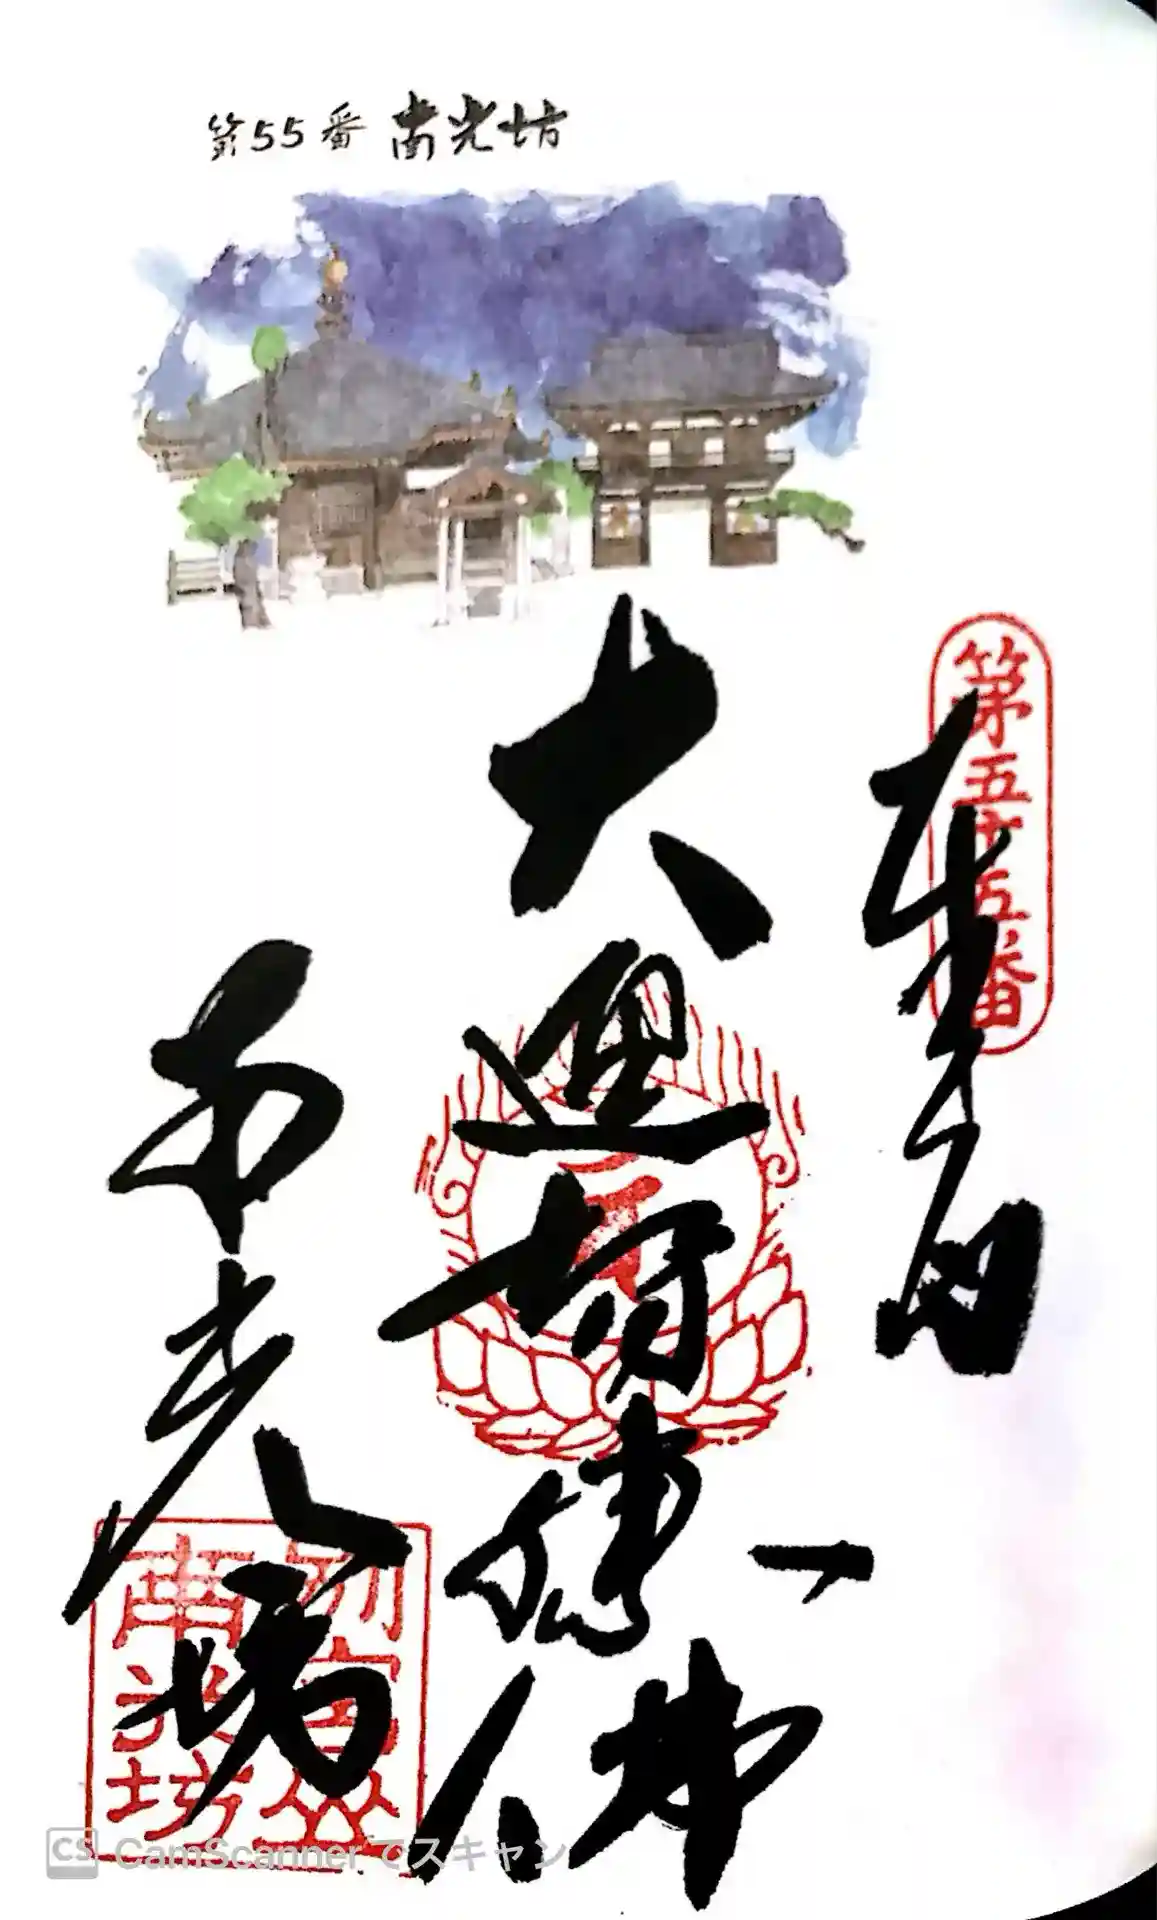 第55番 南光坊
第五十五番
奉納
大通智勝
佛
南光坊
別宮山
南光坊
CS CamScannerでスキャン